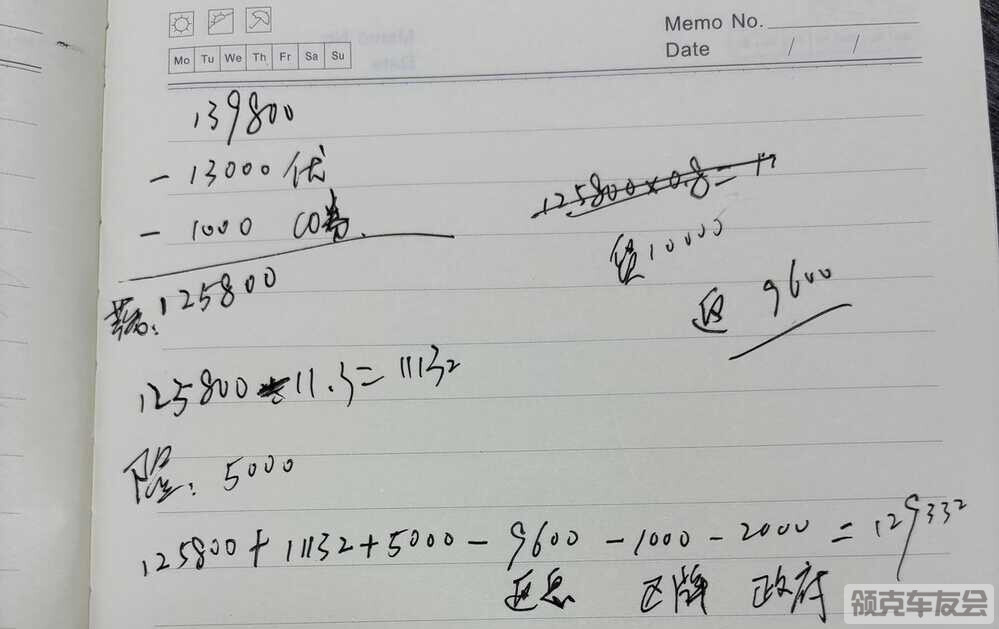 Memo No.
Date / /
Mo Tu We Th Fr Sa Su
139800
- 13000 优
- 1000 CO
125800
125800×0.8=1
10000
返 9600
125800 11.3=11132
险: 5000
125800+11132+5000-9600-1000-2000=129332
返息 区牌 政府
领克车友会